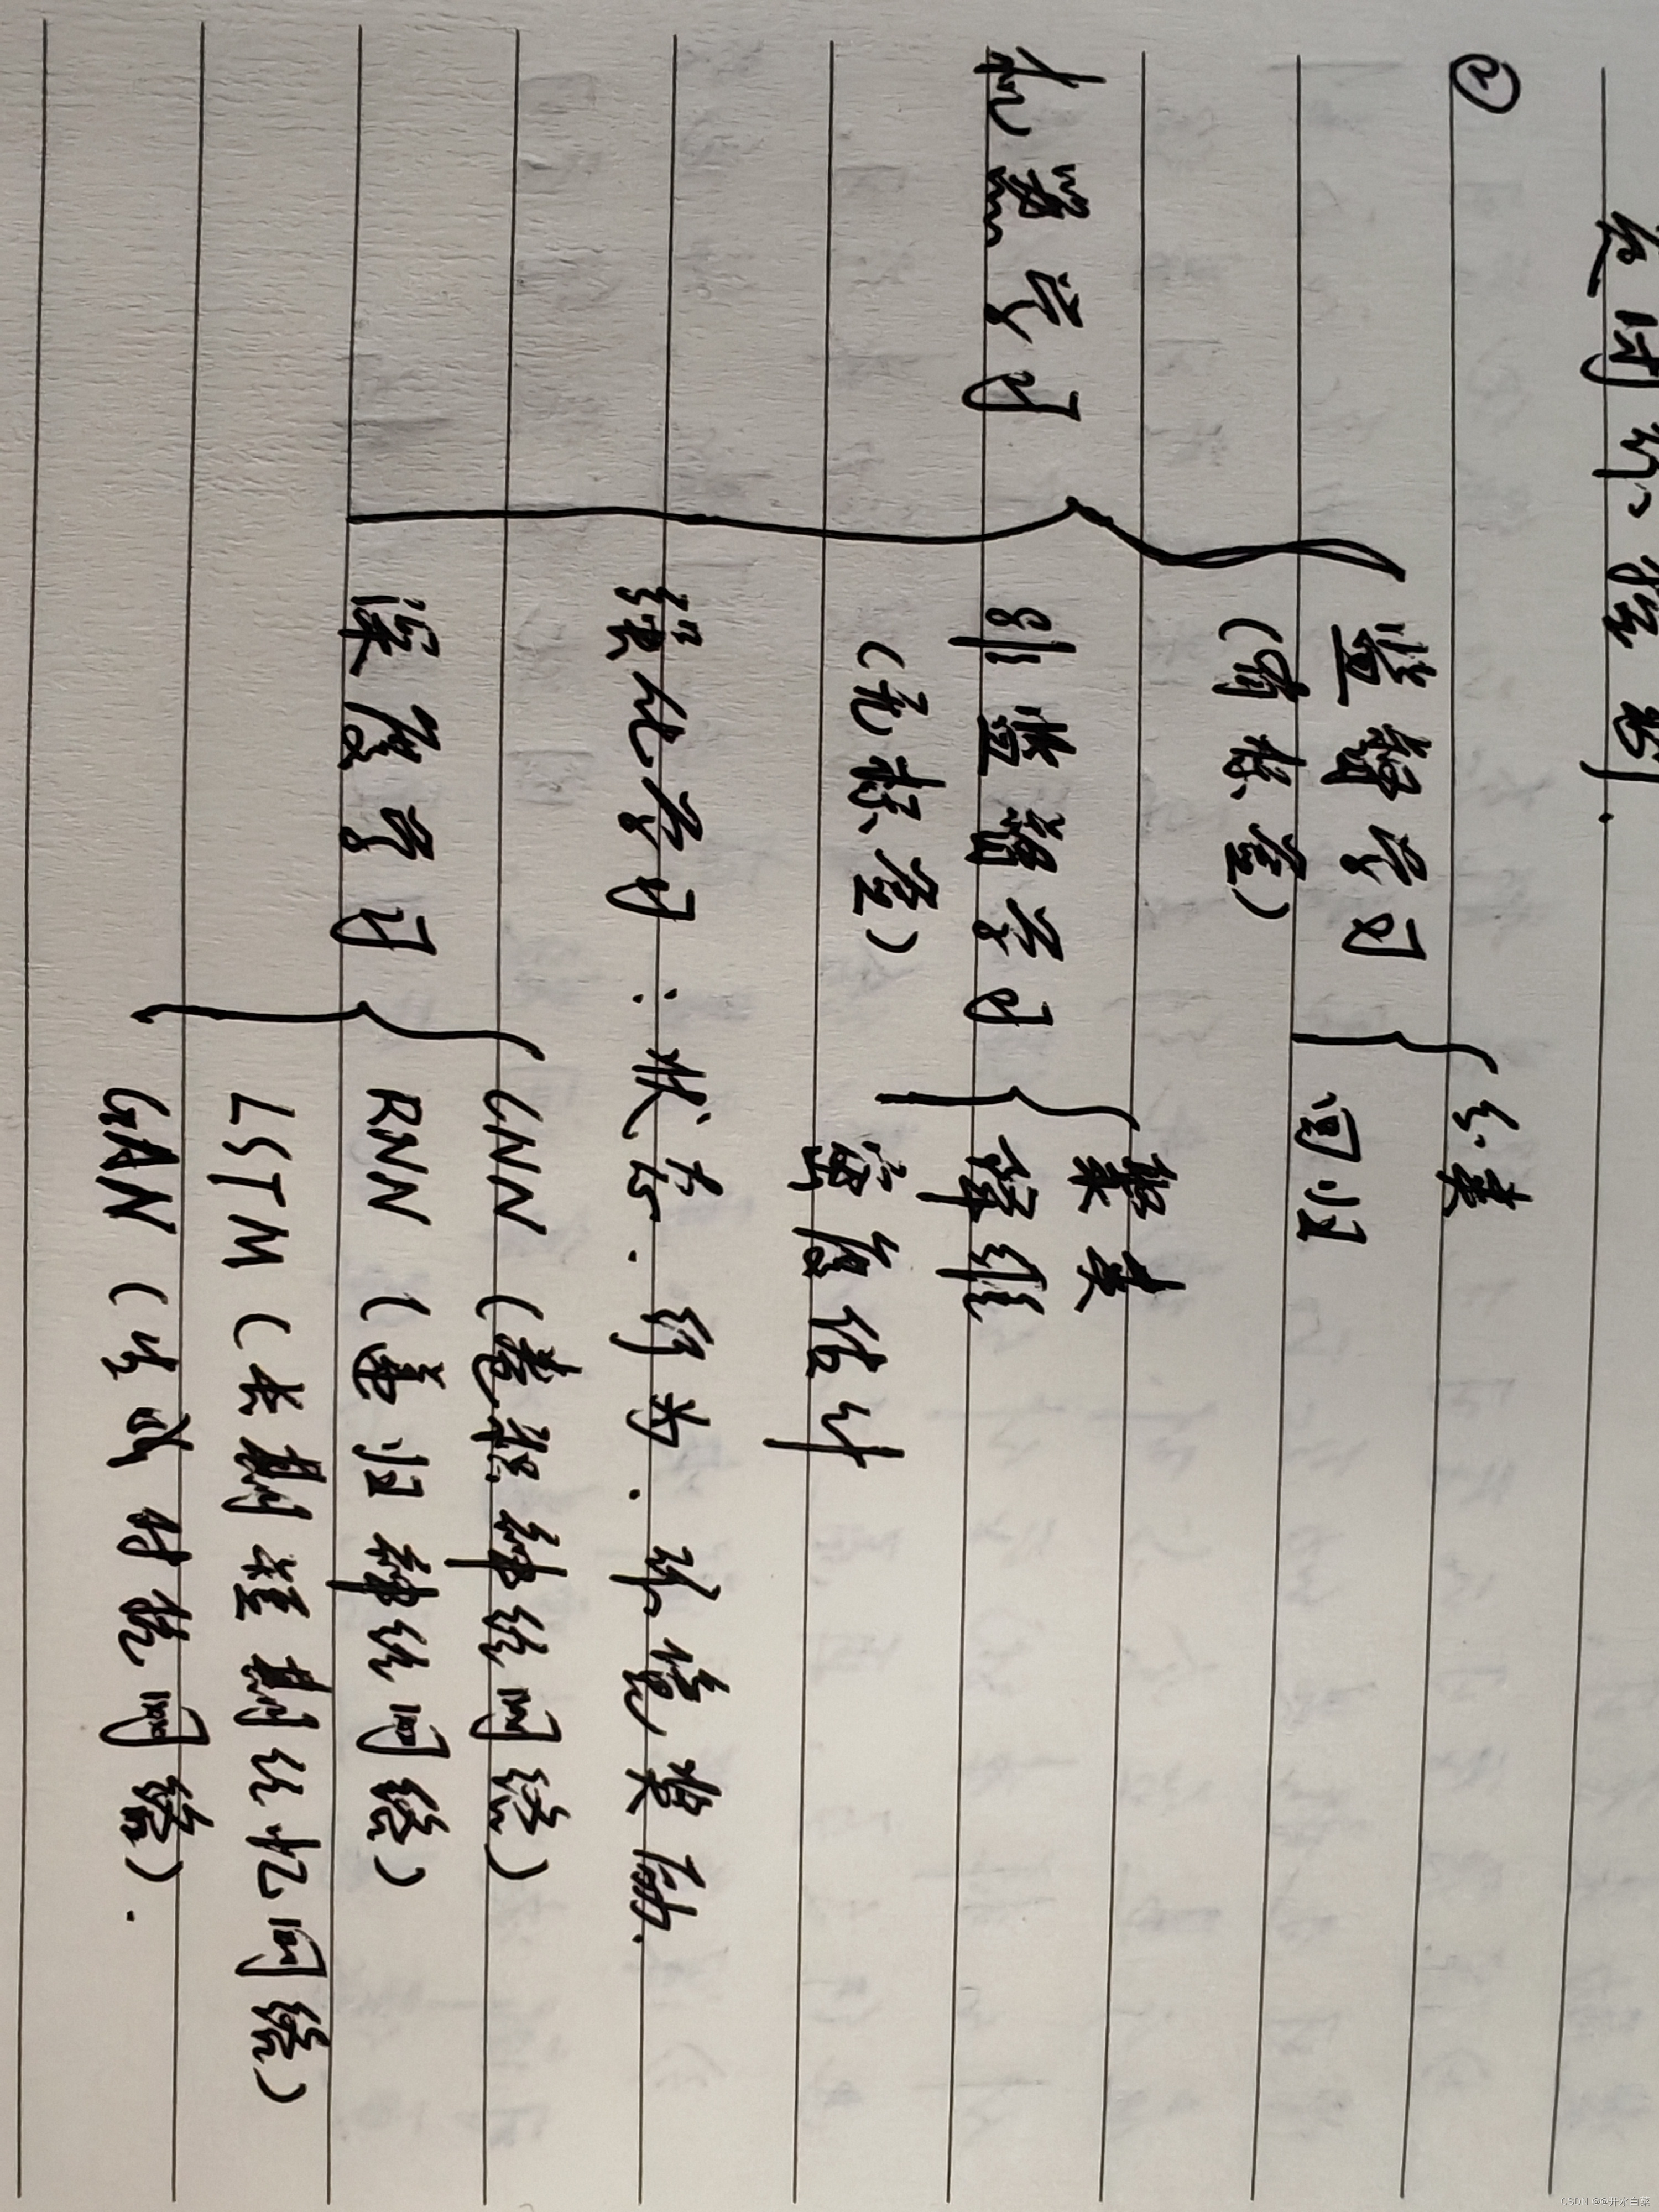 ② 分类
监督学习
(有标签) 回归
聚类
机器学习 非监督学习 降维
(无标签) 密度估计
强化学习:状态.行为.环境奖励.
CNN (卷积神经网络)
深度学习 RNN (递归神经网络)
LSTM (长期短期记忆网络)
GAN (生成对抗网络).
CSDN @@开水白菜